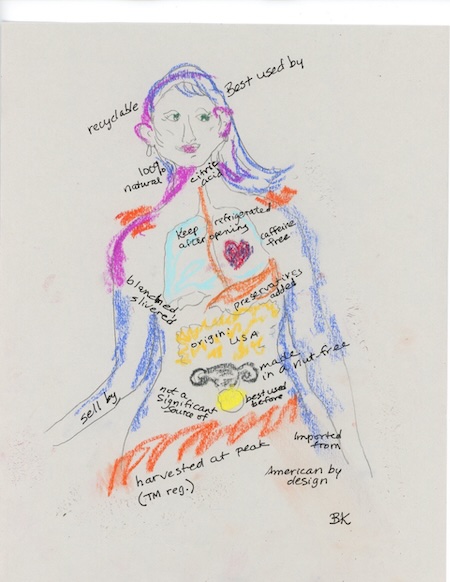 Best used by
recyclable
100%
natural
citric
acid
Keep refrigerated
after opening
caffeine
free
blanched,
slivered
preservatives
added
origin: USA
made
in a nut-free
not a
significant
source of
best used
before
sell by
Imported
from
harvested at peak
(TM reg.)
American by
design
BK